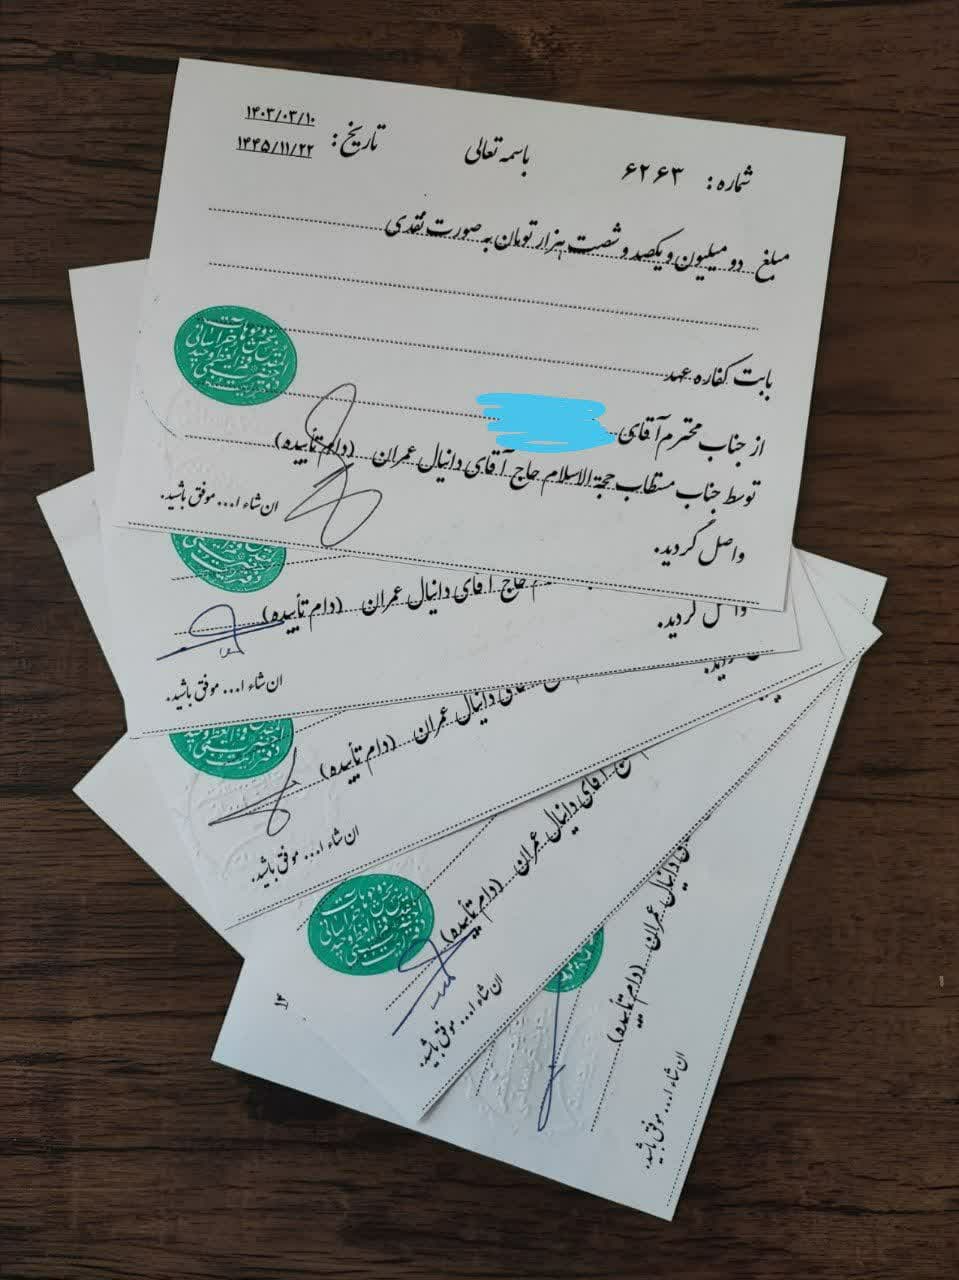 باسمه تعالی
شماره: ۶۲۶۳
تاریخ: ۱۴۰۳/۰۳/۱۰
۱۴۴۵/۱۱/۲۲
مبلغ دو میلیون و یکصد و شصت هزار تومان به صورت نقدی
بابت کفاره عهد
از جناب محترم آقای
توسط جناب مستطاب حجة الاسلام حاج آقای دانیال عمران (دام تأییده)
واصل گردید.
ان شاء ا... موفق باشید.
حاج آقای دانیال عمران (دام تأییده)
واصل گردید.
ان شاء ا... موفق باشید.
آقای دانیال عمران (دام تأییده)
ان شاء ا... موفق باشید.
آقای دانیال عمران (دام تأییده)
ان شاء ا... موفق باشید.
دانیال عمران (دام تأییده)
ان شاء ا... موفق باشید.